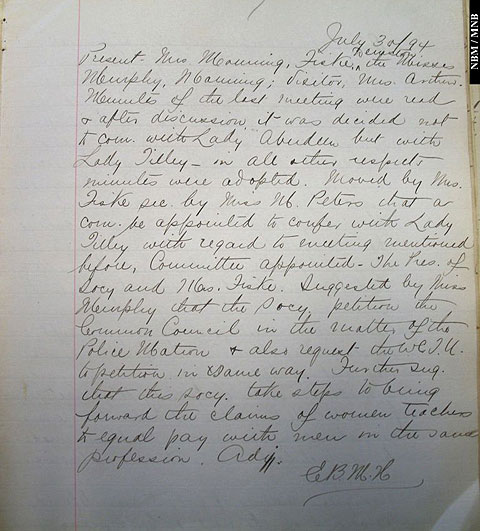 July 30/94
Present - Mrs Manning, Fiske, the Misses
Murphy, Manning; Visitor, Mrs. Arthur.
Minutes of the last meeting were read
& after discussion it was decided not
to com. with Lady Aberdeen but with
Lady Tilley - in all other respects
minutes were adopted. Moved by Mrs.
Fiske sec. by Miss M. Peters that a
com. be appointed to confer with Lady
Tilley with regard to meeting mentioned
before, Committee appointed - The Pres. of
Socy and Mrs. Fiske. Suggested by Miss
Murphy that the Socy petition the
Common Council in the matter of the
Police Matron & also request the W.C.T.U.
to petition in same way. Further sug.
that this socy. take steps to bring
forward the claims of women teachers
to equal pay with men in the same
profession. Adj.
E.B.M.H
NBM / MNB